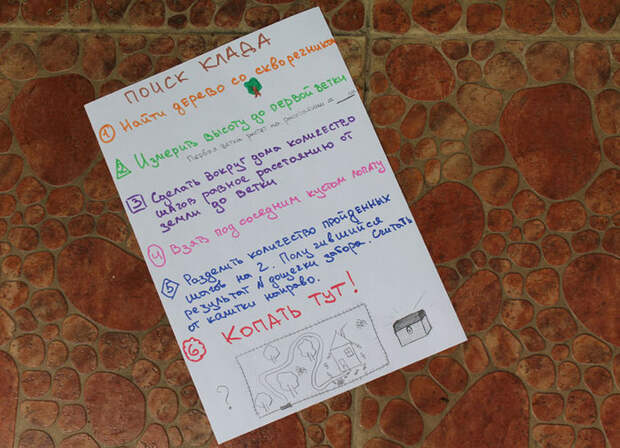 ПОИСК КЛАДА
1 Найти дерево со скворечником
2 Измерить высоту до первой ветки
Первая ветка растет на расстоянии в
3 Сделать вокруг дома количество
шагов равное расстоянию от
земли до ветки
4 Взять под соседним кустом лопату
5 Разделить количество пройденных
шагов на 2. Получившийся
результат N дощечки забора. Считать
от калитки направо.
6 КОПАТЬ ТУТ!
?